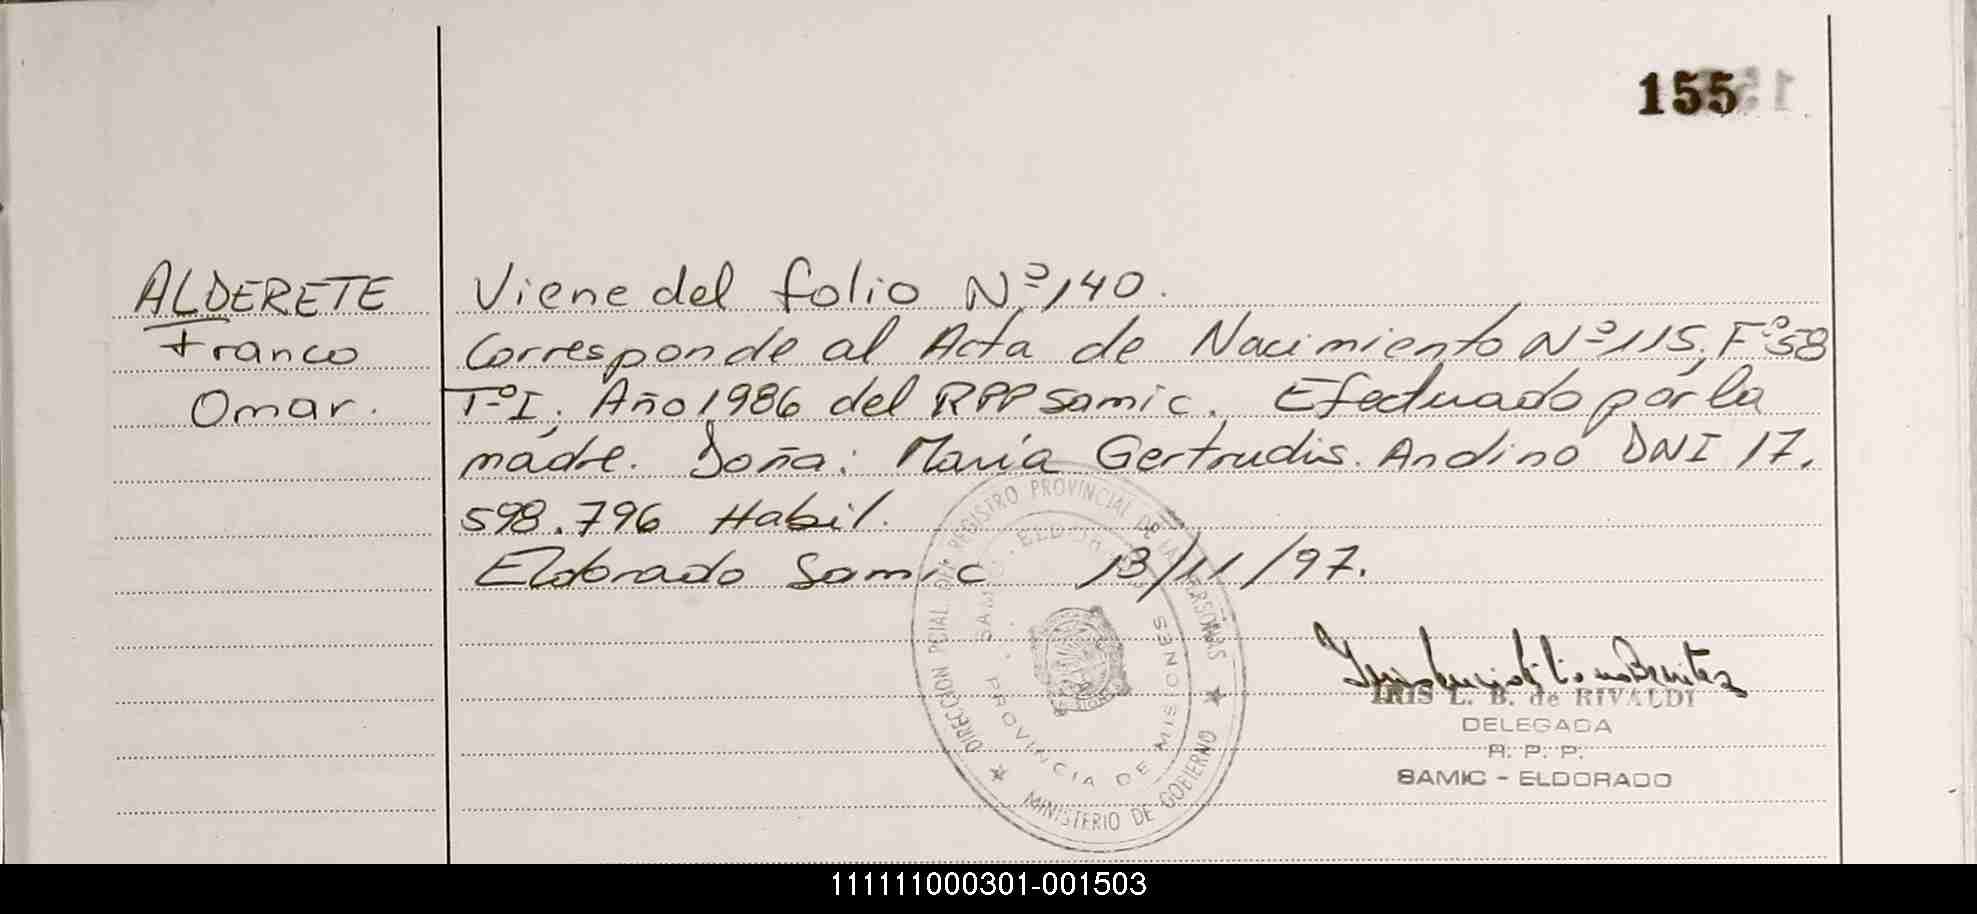 155
ALDERETE
Franco
Omar.
Viene del folio Nº 140.
Corresponde al Acta de Nacimiento Nº 115, Fº 58
Tº I, Año 1986 del RPP Samic. Efectuado por la
madre. Doña: María Gertrudis Andino DNI 17.
598.796 Habil.
Eldorado Samic 13/11/97.
DIRECCION PCIAL DEL REGISTRO PROVINCIAL DE LAS PERSONAS
SAMIC - ELDORADO
PROVINCIA DE MISIONES
MINISTERIO DE GOBIERNO
IRIS L. B. de RIVALDI
DELEGADA
R. P. P.
SAMIC - ELDORADO
111111000301-001503